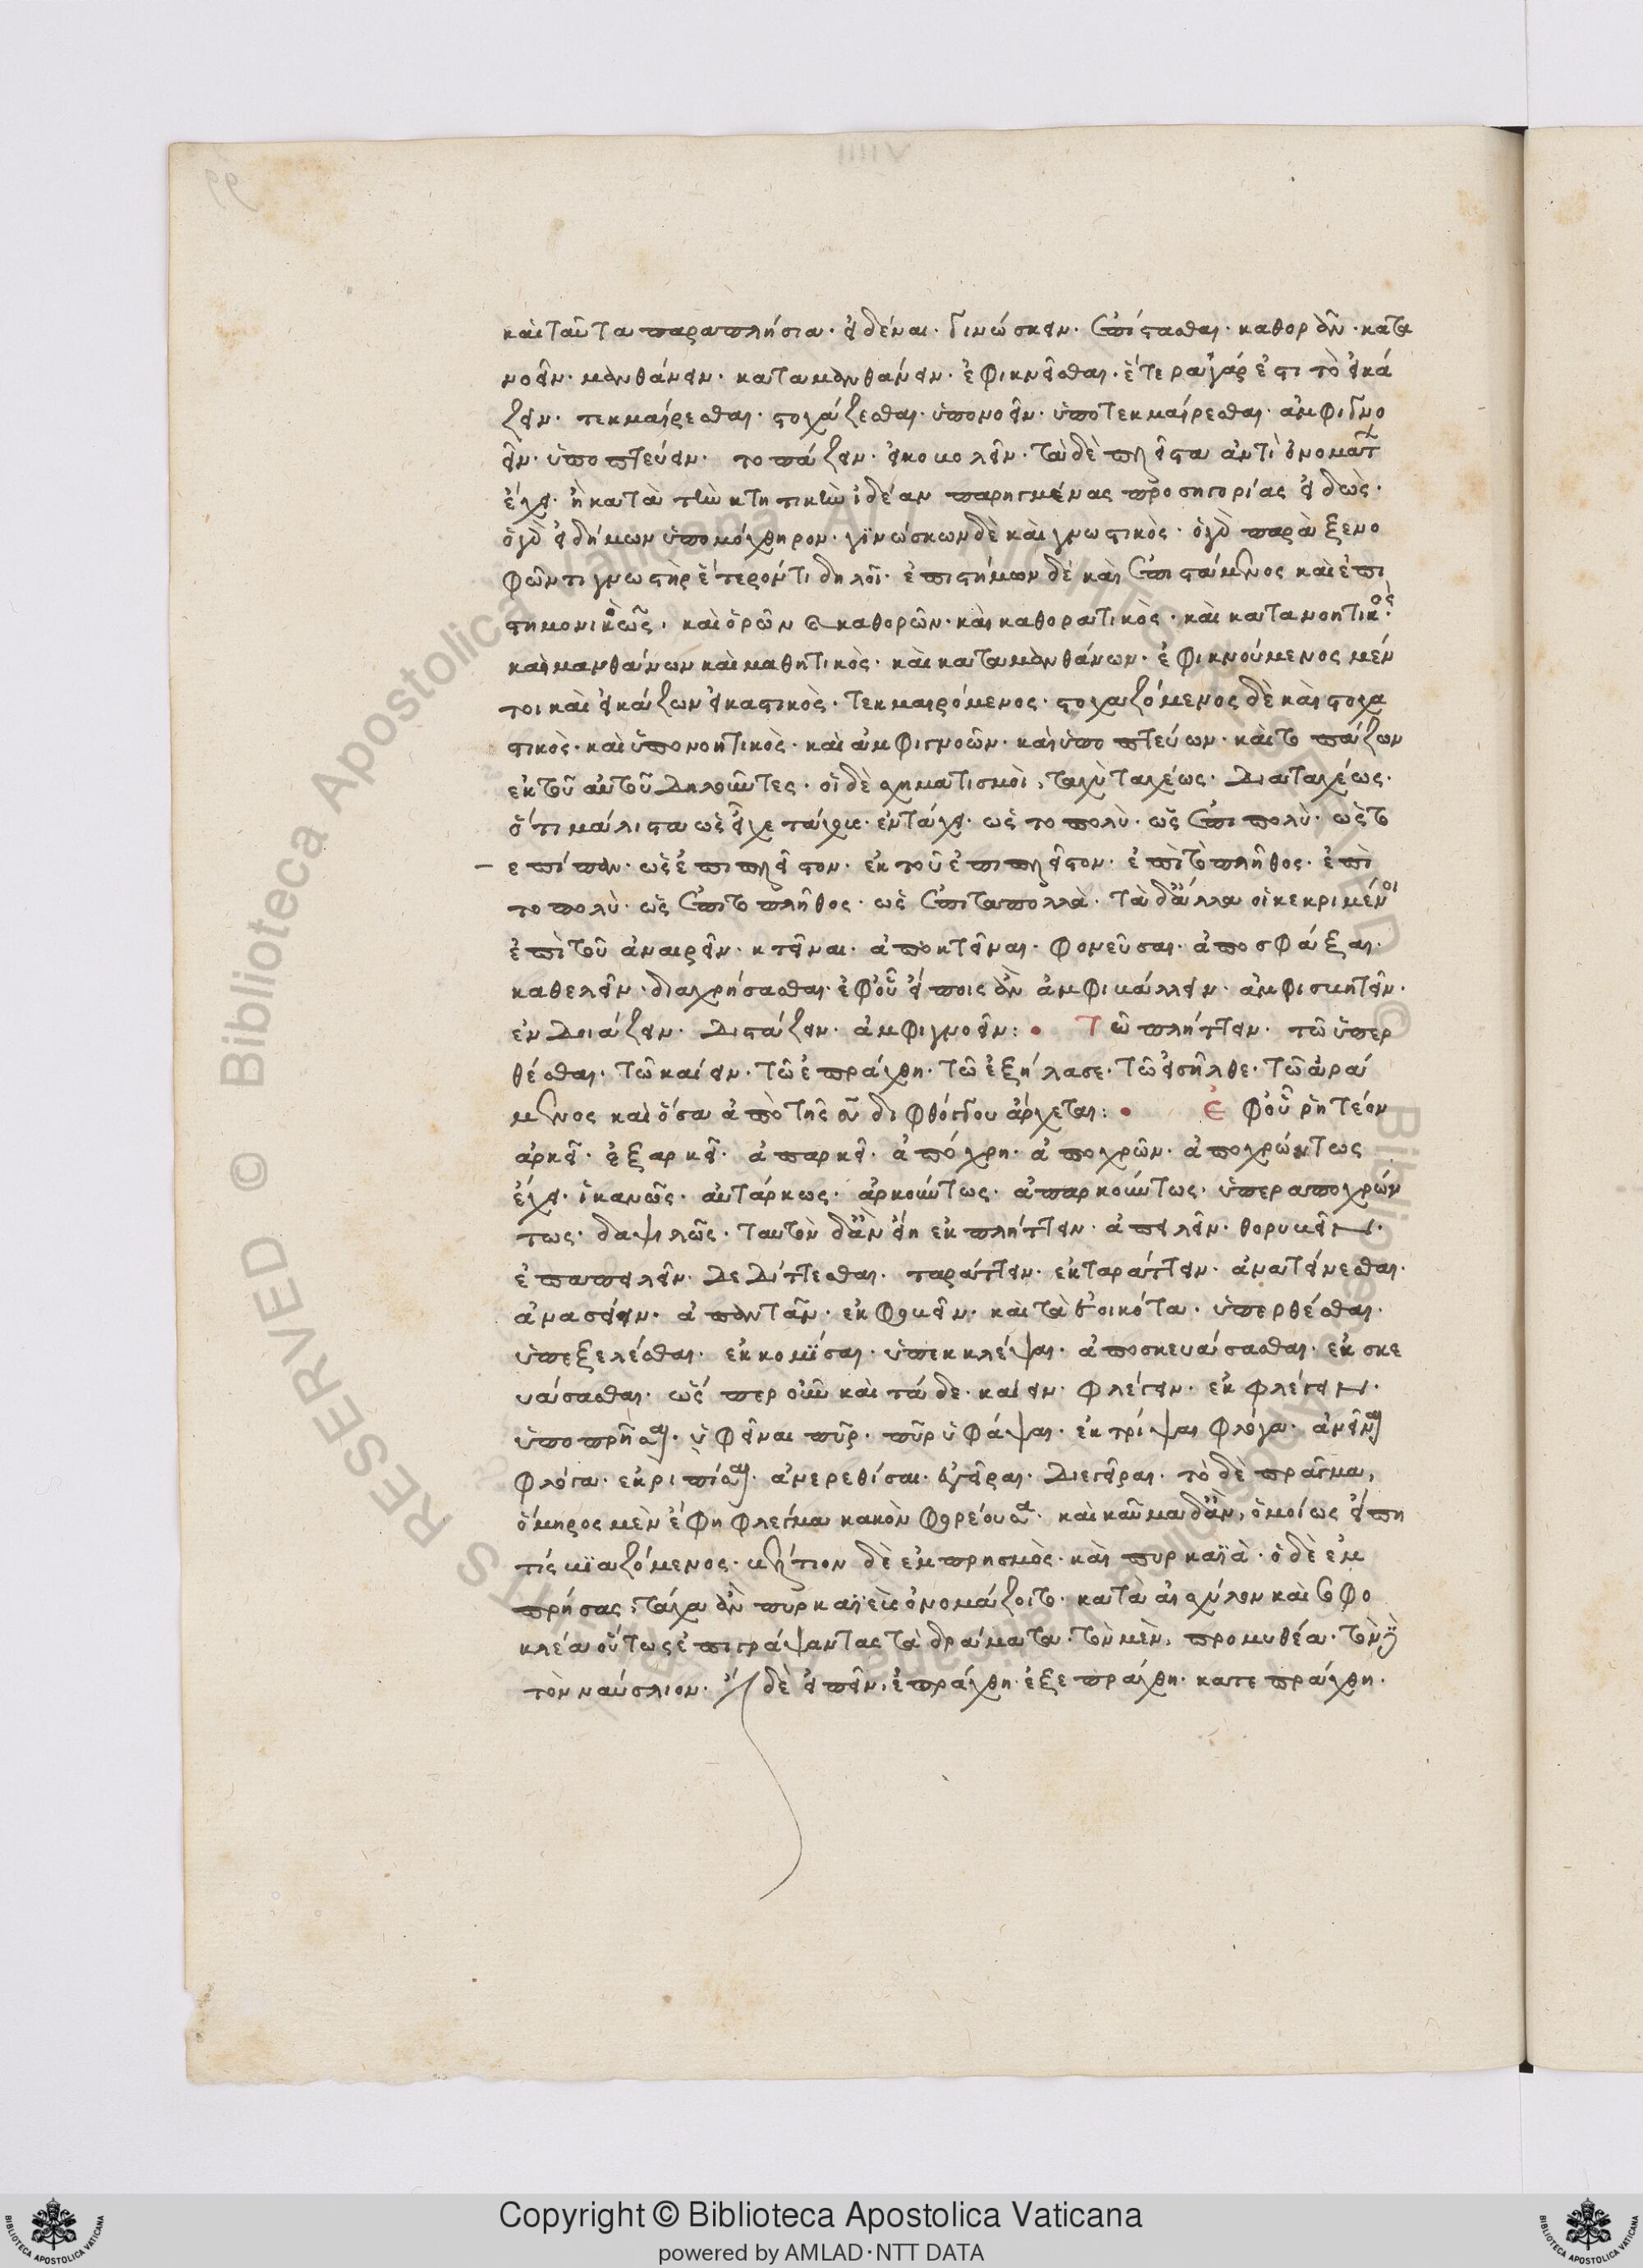 καὶ ταῦτα παραπλήσια· εἰδέναι· γινώσκειν· ἐπίστασθαι· καθορᾶν· κατα
νοεῖν· μανθάνειν· καταμανθάνειν· ἐφικνεῖσθαι· ἕτερα γάρ ἐστι τὸ εἰκά
ζειν· τεκμαίρεσθαι· στοχάζεσθαι· ὑπονοεῖν· ὑποτεκμαίρεσθαι· ἀμφιγνο
εῖν· ὑποπτεύειν· τοπάζειν· εἰκοβολεῖν· τὰ δὲ πλεῖστα ἀντὶ ὀνομάτων
ἔχει· ἢ κατὰ τὴν κτητικὴν ἰδέαν παρηγμένας προσηγορίας εἰδὼς·
ὁ γὰρ εἰδήμων ὑπομόχθηρον· γινώσκων δὲ καὶ γνωστικὸς· ὁ γὰρ παρὰ ξενο
φῶντι γνωστὴρ ἕτερόν τι δηλοῖ· ἐπιστήμων δὲ καὶ ἐπιστάμενος καὶ ἐπι
στημονικὸς· καὶ ὁρῶν καὶ καθορῶν· καὶ καθορατικὸς· καὶ κατανοητικὸς·
καὶ μανθάνων καὶ μαθητικὸς· καὶ καταμανθάνων· ἐφικνούμενος μέν
τοι καὶ εἰκάζων εἰκαστικὸς· τεκμαιρόμενος· στοχαζόμενος δὲ καὶ στοχα
στικὸς· καὶ ὑπονοητικὸς· καὶ ἀμφιγνοῶν· καὶ ὑποπτεύων· καὶ τοπάζων
ἐκ τοῦ αὐτοῦ δηλοῦντες· οἱ δὲ σχηματισμοὶ, ταχὺ ταχέως· διαταχέως·
ὅτι μάλιστα ὡς εἶχε τάχους· ἐν τάχει· ὡς το πολὺ· ὡς ἐπι πολὺ· ὡς το
επίπαν· ὡς ἐπιπλεῖστον· ἐκ τοῦ ἐπιπλεῖστον· ἐπὶ τὸ πλῆθος· ἐπὶ
το πολὺ· ὡς ἐπὶ το πλῆθος· ὡς ἐπὶ τα πολλὰ· τὰ δ' ἄλλα οἱ κεκριμένοι
ἐπὶ τοῦ ἀναιρεῖν· κτεῖναι· ἀποκτεῖναι· φονεῦσαι· ἀποσφάξαι·
καθελεῖν· διαχρήσασθαι· ἐφ' οὗ εἴποις ἂν ἀμφιβάλλειν· ἀμφισβητεῖν·
ἐνδοιάζειν· διστάζειν· ἀμφιγνοεῖν: • Τῶ πλήττειν· τῶ ὑπερ
θέσθαι· τῶ καίειν· τῶ ἐπράχθη· τῶ ἐξήλασε· τῶ εἰσῆλθε· τῶ ἀρά
μενος καὶ ὅσα ἀπὸ τῆς ου διφθόγγου ἄρχεται: • Ἐφ' οὗ ῥητέον
ἀρκεῖ· ἐξαρκεῖ· ἀπαρκεῖ· ἀπόχρη· ἀποχρῶν· ἀποχρώντως
ἔχει· ἱκανῶς· αὐτάρκως· ἀρκούντως· ἀπαρκούντως· ὑπεραποχρών
τως· δαψιλῶς· ταυτὸν δ' ἂν εἴη ἐκπλήττειν· ἀπειλεῖν· θορυβεῖν·
ἐπαπειλεῖν· δεδίττεσθαι· ταράττειν· ἐκταράττειν· ἀνατείνεσθαι·
ἀνασείειν· ἀπαντᾶν· ἐκφοβεῖν· καὶ τὰ ἐοικότα· ὑπερθέσθαι·
ὑπεξελέσθαι· ἐκκομίσαι· ὑπεκκλέψαι· ἀποσκευάσασθαι· ἐκσκε
υάσασθαι· ὥσπερ οὖν καὶ τάδε· καίειν· φλέγειν· ἐκφλέγειν·
ὑποπρῆσαι· ὑφεῖναι πῦρ· πῦρ ὑφάψαι· ἐκτρίψαι φλόγα· ἀνεῖναι
φλόγα· ἐκριπίσαι· ἀνερεθίσαι· ἐγεῖραι· διεγεῖραι· τὸ δὲ πρᾶγμα,
ὅμηρος μὲν ἔφη φλέγμα κακὸν φορέουσα· καὶ καῦμα δ' ἂν, ὁμοίως εἴπη
τίς βιαζόμενος· βέλτιον δὲ ἐμπρησμὸς· καὶ πυρκαϊὰ· ὁ δὲ ἐμ
πρήσας, τάχα ἂν πυρκαϊεὺς ὀνομάζοιτο· κατὰ αἰσχύλον καὶ σοφο
κλέα οὕτως ἐπιγράψαντας τὰ δράματα· τὸν μὲν, προμηθέα· τὸν δὲ
τὸν ναύπλιον· ἔστι δὲ εἰπεῖν, ἐπράχθη· ἐξεπράχθη· κατεπράχθη·
Copyright © Biblioteca Apostolica Vaticana
powered by AMLAD·NTT DATA